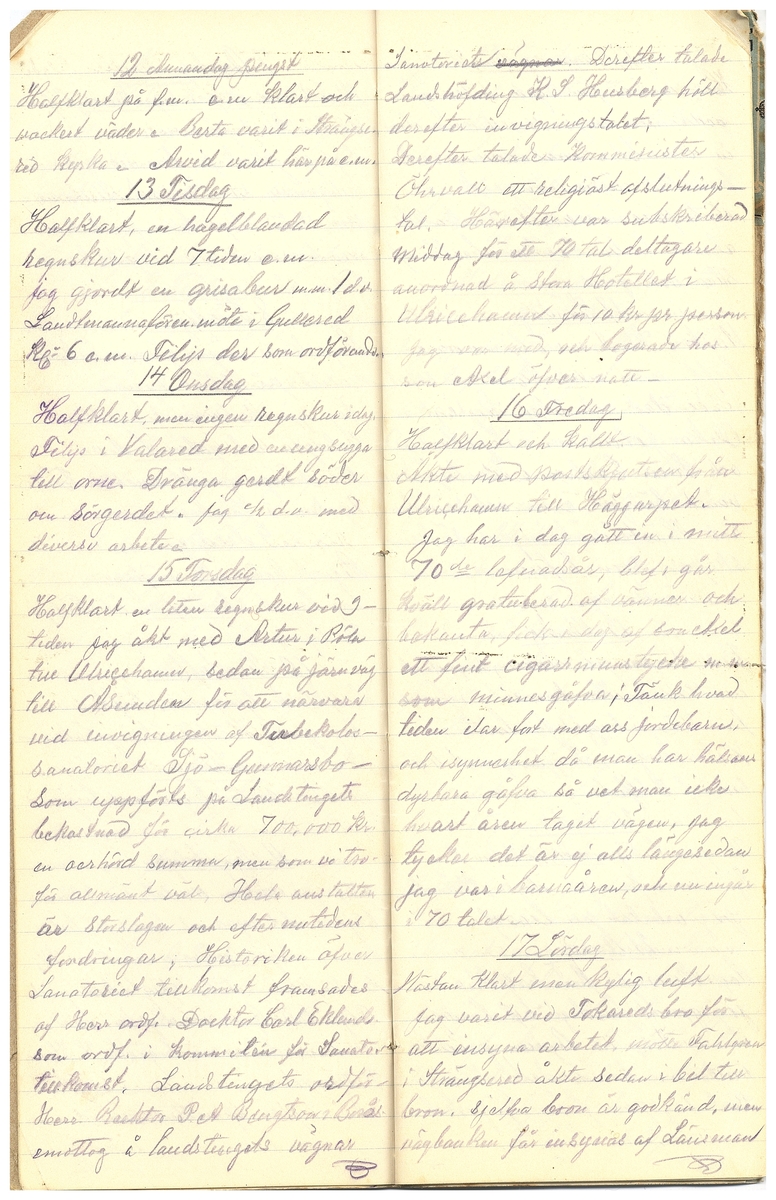 12 Annandag pingst
Halfklart på f.m. e.m klart och
vackert väder. Berta varit i Strängse-
red kyrka. Arvid varit här på e.m.
13 Tisdag
Halfklart, en hagelblandad
regnskur vid 7 tiden e.m.
jag gjordt en grisabur m.m. 1 d.v.
Landtmannafören. möte i Gullered
Kl. 6 e.m. Filijs der som ordförande.
14 Onsdag
Halfklart, men ingen regnskur idag.
Filijs i Valared med en ungsugga
till orne. Dränga gerdt söder
om Sörgerdet. jag 1/2 d.v. med
diverse arbete.
15 Torsdag
Halfklart en liten regnskur vid 9-
tiden Jag åkt med Artur i Röln
till Ulricehamn, sedan på järnväg
till Åsunden för att närvara
vid invigningen af Tuberkolos-
sanatoriet Sjö-Gunnarsbo-
som uppförts på Landstingets
bekostnad för cirka 700,000 Kr.
en oerhörd summa, men som vi tro-
för allmänt väl. Hela anstalten
är storslagen och efter nutidens
fordringar; Historiken öfver
Sanatoriet tillkomst framsades
af Herr ordf. Docktor Carl Eklund
som ordf. i kommitén för Sanator
tillkomst. Landstingets ordför-
Herr Recktor P. A Bengtson Borås
emottog å landstingets vägnar
Sanatoriets vägnar. Derefter talade
Landshöfding K. S. Husberg höll
derefter invigningstalet;
Derefter talade Kommінister
Öhrvall ett religiöst afslutnings-
tal. Härefter var subskriberad
Middag för ett 70 tal deltagare
anordnad å Stora Hotellet i
Ulricehamn för 10 kr per person
Jag var med, och logerade hos
son Axel öfver natt-
16 Fredag
Halfklart och kallt
Åkte med postskjutsen från
Ulricehamn till Häggarpet.
Jag har i dag gått en i mitt
70de lefnadsår, blef i går
kväll gratulerad af vänner och
bekanta, fick i dag af son Axel
ett fint cigarrmunstycke
som minnesgåfva; Tänk hvad
tiden ilar fort med oss jordebarn,
och isynnerhet då man har hälsans
dyrbara gåfva så vet man icke
hvart åren taget vägen, jag
tycker det är ej alls längesedan
jag var i barnaåren, och nu ingår
i 70 talet
17 Lördag
Nästan klart men kylig luft
Jag varit vid Tokareds bro för
att insyna arbetet, mötte Fahlgren
i Strängsered åkte sedan i bil till
bron. sjelfva bron är godkänd, men
vägbanken får insynas af Länsman